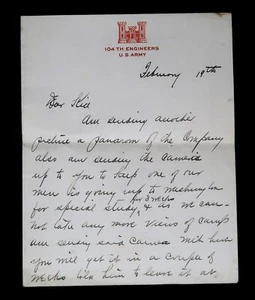 104TH ENGINEERS
U.S. ARMY
February 19th
Dear Kid
Am sending another
picture a panaram of the Company
also am sending the camera
up to you to keep one of our
men is going up to Washington
for 3 weeks
for special study, & as we can-
not take any more views of camp
am sending said Camera with him
you will get it in a couple of
weeks told him to leave it at